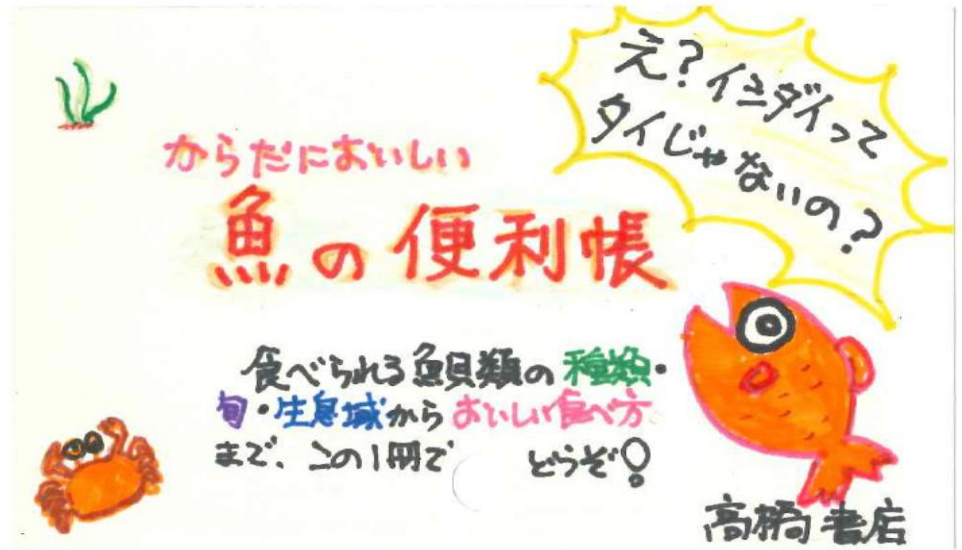 え?イシダイって
タイじゃないの?
からだにおいしい
魚の便利帳
食べられる魚貝類の種類・
旬・生息域からおいしい食べ方
まで、この1冊で どうぞ!
高橋書店